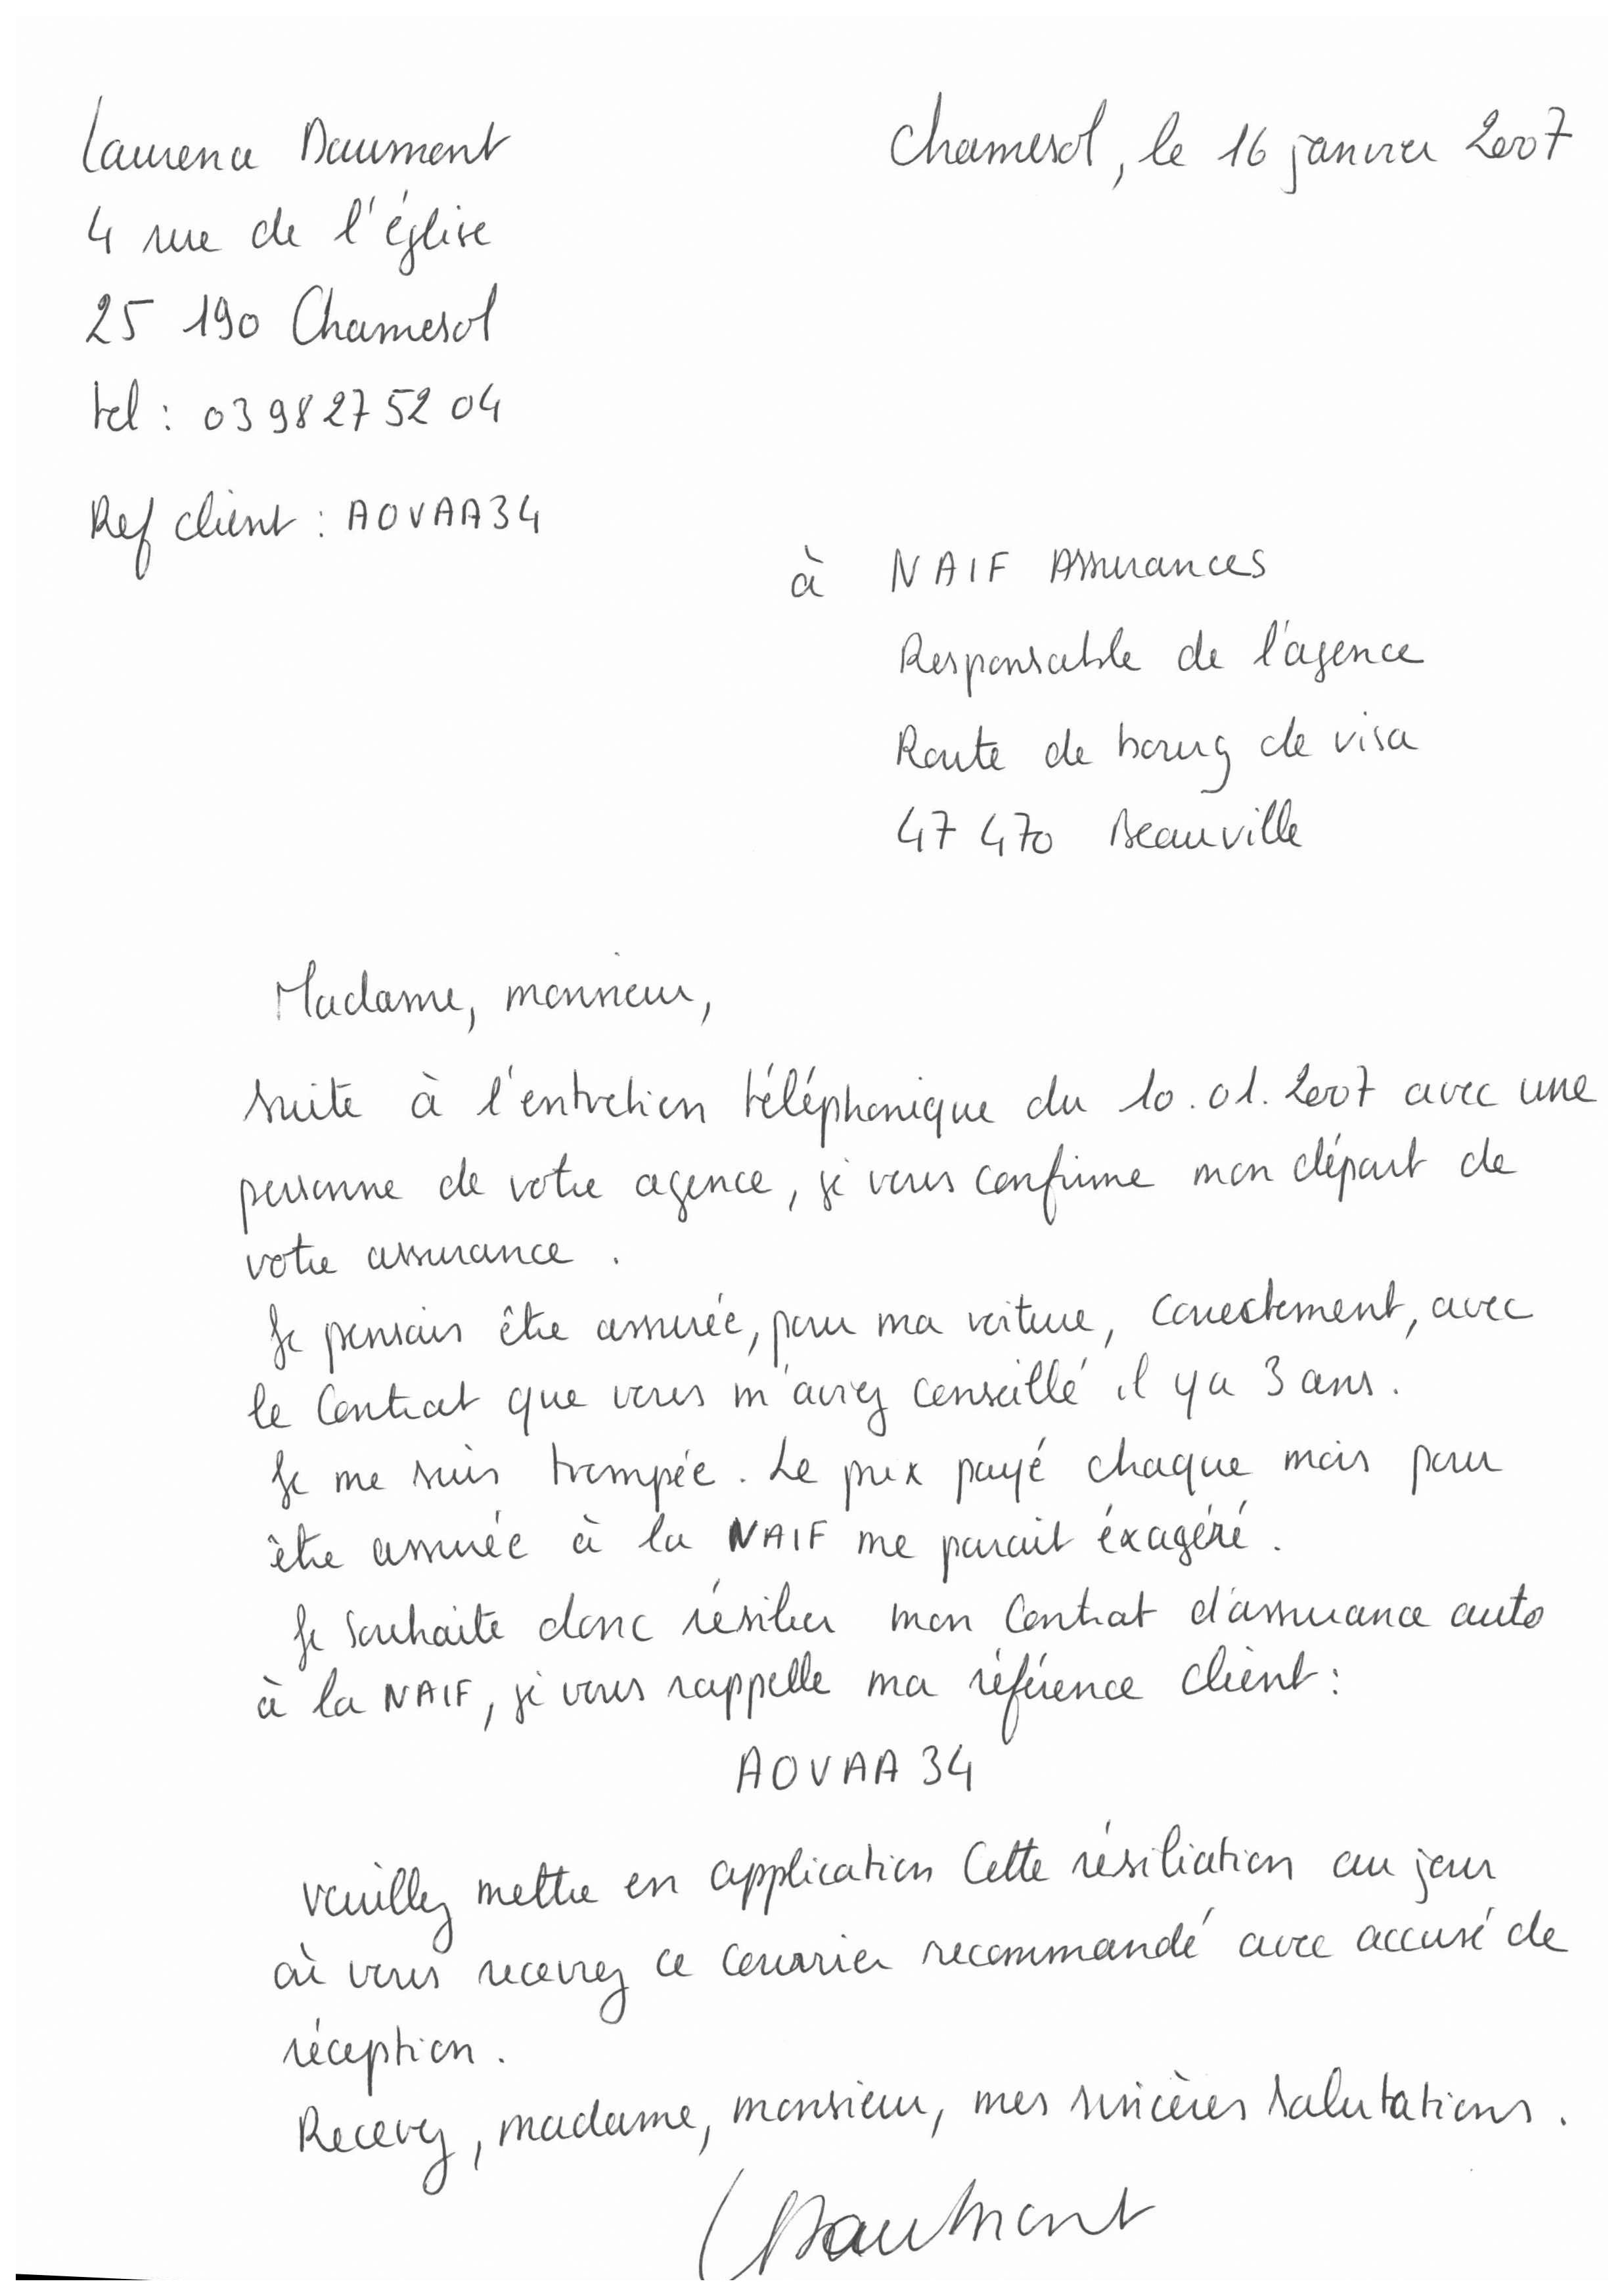 Laurence Daumont
4 rue de l'église
25 190 Chamesol
tel : 03 98 27 52 04
Ref client : AOVAA34
Chamesol, le 16 janvier 2007
à NAIF Assurances
Responsable de l'agence
Route de bourg de visa
47 470 Beauville
Madame, monsieur,
suite à l'entretien téléphonique du 10.01.2007 avec une
personne de votre agence, je vous confirme mon départ de
votre assurance.
Je pensais être assurée, pour ma voiture, correctement, avec
le contrat que vous m'aviez conseillé il y a 3 ans.
Je me suis trompée. Le prix payé chaque mois pour
être assurée à la NAIF me parait éxagéré.
Je souhaite donc résilier mon contrat d'assurance auto
à la NAIF, je vous rappelle ma référence client :
AOVAA 34
Veuillez mettre en application cette résiliation au jour
où vous recevrez ce courrier recommandé avec accusé de
réception.
Recevez, madame, monsieur, mes sincères salutations.
Daumont